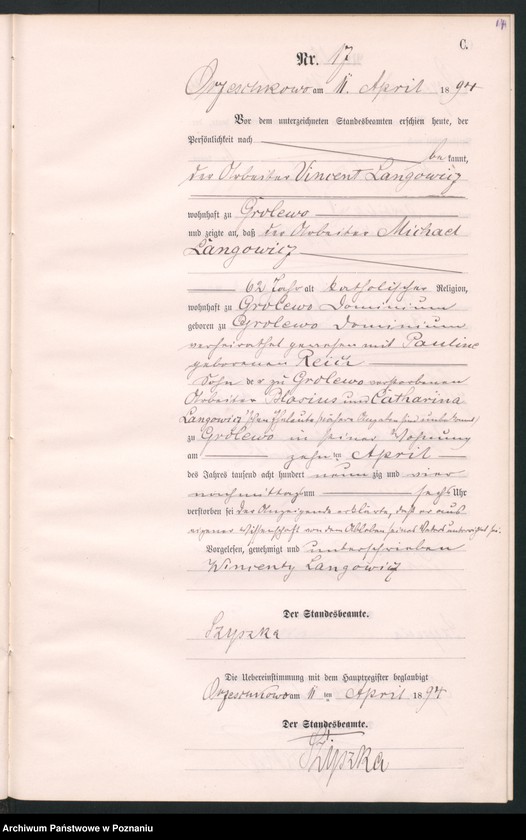 C.
Nr. 17
Orzeschkowo am 11. April 1894
Vor dem unterzeichneten Standesbeamten erschien heute, der
Persönlichkeit nach
bekannt,
der Arbeiter Vincent Langowicz
wohnhaft zu Grolewo
und zeigte an, daß der Arbeiter Michael
Langowicz
62 Jahr alt katholischer Religion,
wohnhaft zu Grolewo Dominium
geboren zu Grolewo Dominium
verheirathet gewesen mit Pauline
geborenen Reich
Sohn der zu Grolewo verstorbenen
Arbeiter Blasius und Catharina
Langowicz'schen Eheleute
zu Grolewo in seiner Wohnung
am zehnten April
des Jahres tausend acht hundert neunzig und vier
nachmittags um sechs Uhr
verstorben sei der Anzeigende erklärte, daß er aus
eigener Wissenschaft von dem Ableben seines Vaters unterrichtet sei.
Vorgelesen, genehmigt und unterschrieben
Wincenty Langowicz
Der Standesbeamte.
Szyszka
Die Uebereinstimmung mit dem Hauptregister beglaubigt
Orzeschkowo am 11 ten April 1894
Der Standesbeamte.
Szyszka
Archiwum Państwowe w Poznaniu